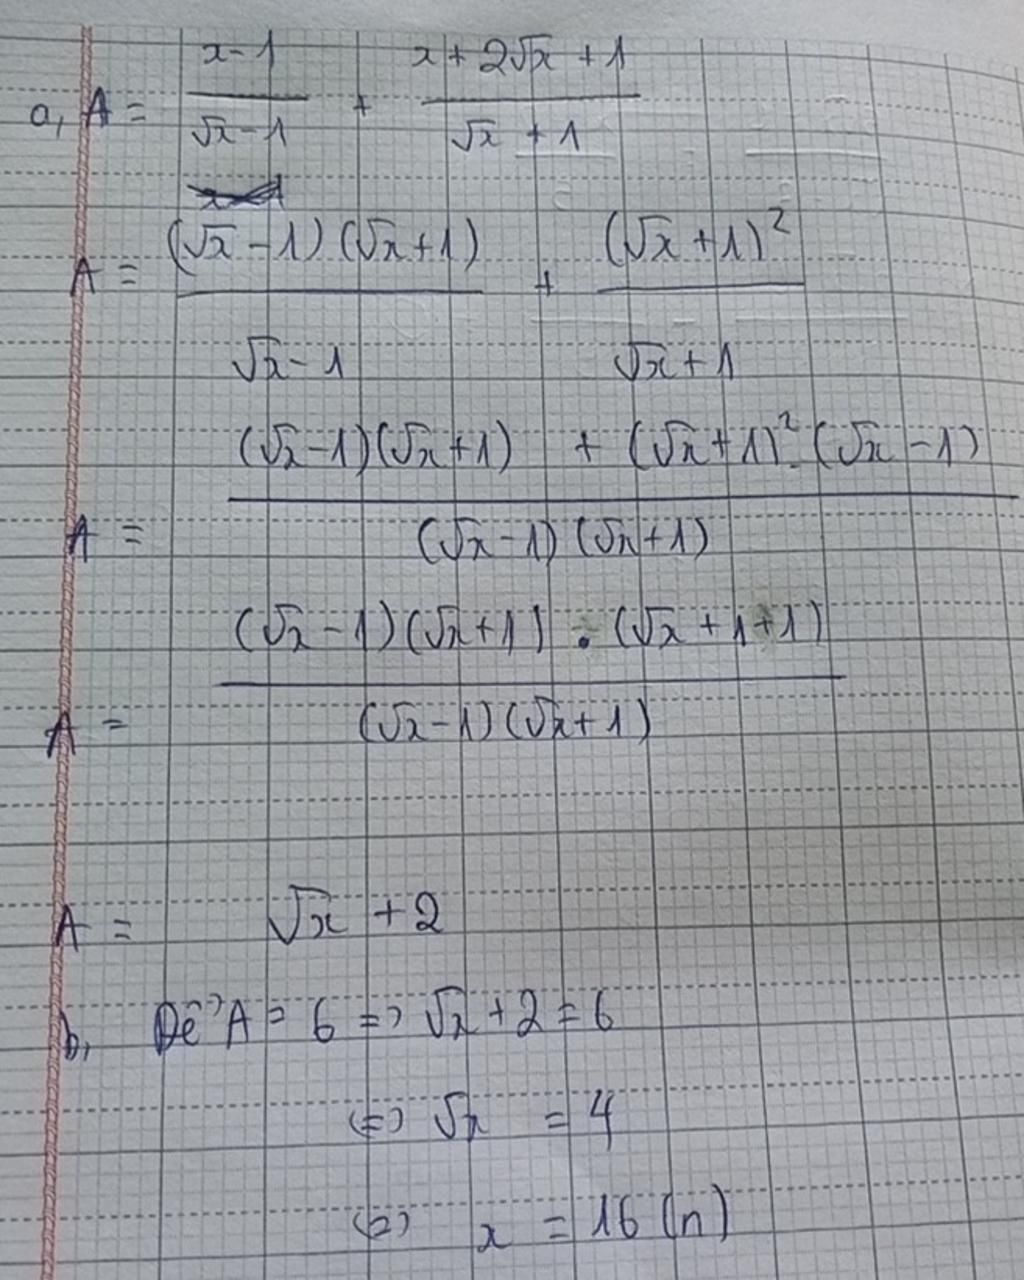 a, A = x-1 / √x-1 + x+2√x+1 / √x+1
A = (√x-1)(√x+1) / √x-1 + (√x+1)² / √x+1
A = (√x-1)(√x+1) + (√x+1)²(√x-1) / (√x-1)(√x+1)
A = (√x-1)(√x+1) . (√x+1+1) / (√x-1)(√x+1)
A = √x +2
b, Để A = 6 => √x +2 = 6
<=> √x = 4
<=> x = 16 (n)